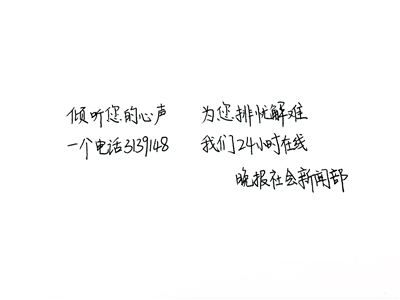 倾听您的心声 为您排忧解难
一个电话3139148 我们24小时在线
晚报社会新闻部